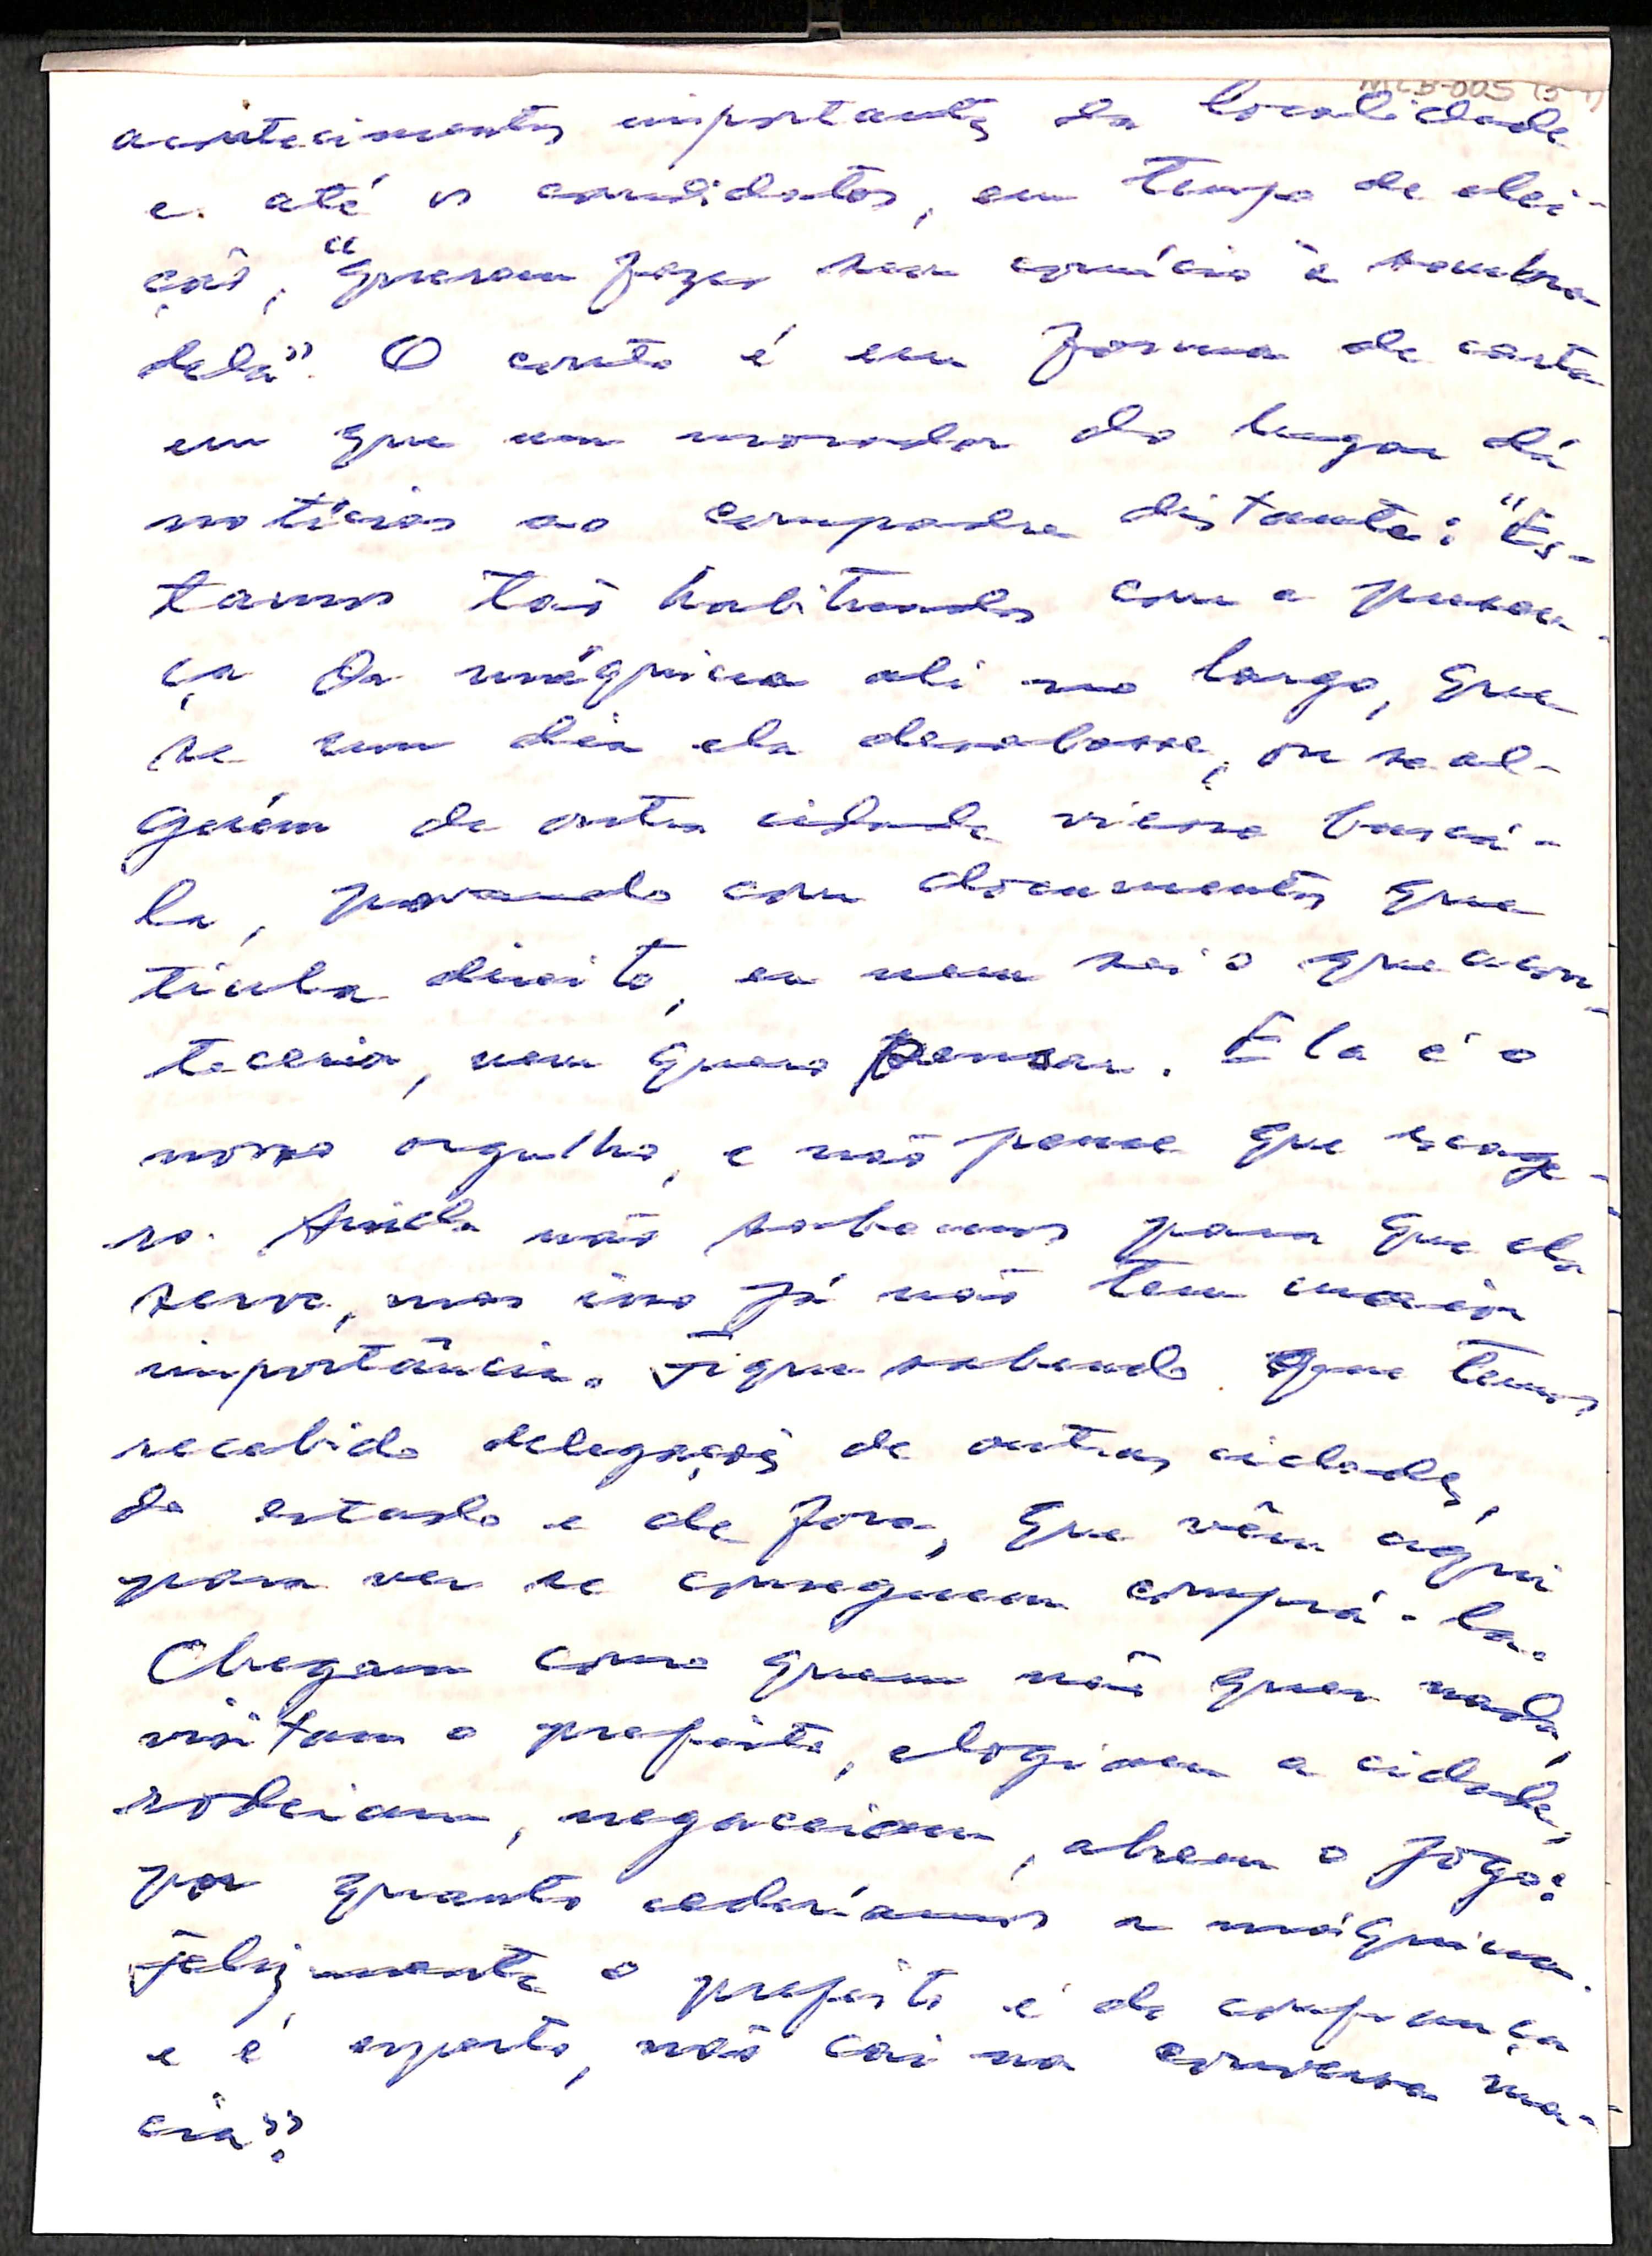 MCB-005
acontecimentos importantes da localidade
e até os candidatos, em tempo de elei-
ção, "querem fazer seu comício à sombra
dela". O conto é em forma de carta
em que um morador do lugar dá
notícias ao compadre distante: "Es-
tamos tão habituados com a presen-
ça da máquina ali no largo, que
se um dia ela desabasse, ou se al-
guém de outra cidade viesse buscá-
la, provando com documentos que
tinha direito, eu nem sei o que acon-
teceria, nem quero pensar. Ela é o
nosso orgulho, e não pense que exage-
ro. Ainda não sabemos para que ela
serve, mas isso já não tem maior
importância. Fique sabendo que temos
recebido delegações de outras cidades,
do estado e de fora, que vêm aqui
para ver se conseguem comprá-la.
Chegam como quem não quer nada,
visitam o prefeito, elogiam a cidade,
rodeiam, negaceiam, abrem o jogo:
por quanto cederíamos a máquina.
Felizmente o prefeito é de confiança
e é esperto, não cai na conversa ma-
cia".